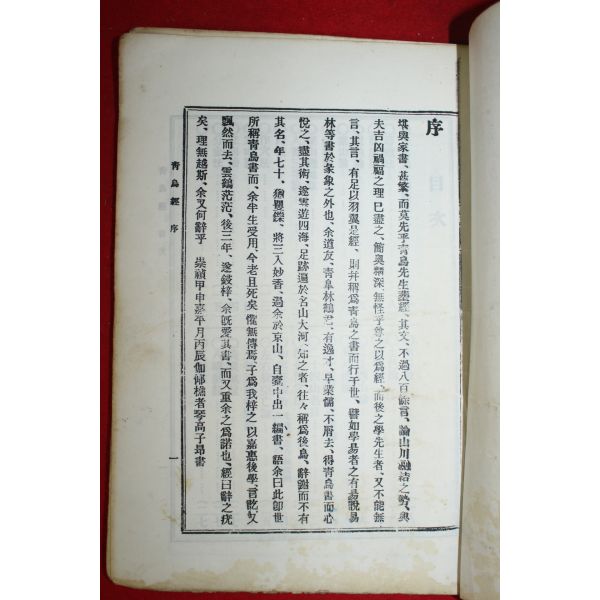 序
堪輿家書、甚繁、而莫先乎靑烏先生葬經、其文、不過八百餘言、論山川融結之勢、與
夫吉凶禍福之理、已盡之、簡奧禁深、無怪乎尊之以爲經、而後之學先生者、又不能無
言、其言、有足以羽翼是經、則幷稱爲靑烏之書而行于世、譬如學易者之有易說易
林等書於彖象之外也、余道友、靑皐林鶴君、有逸才、早業儒、不屑去、得靑烏書而心
悅之、盡其術、遂雲遊四海、足跡遍於名山大河、知之者、往々稱爲後烏、辭謝而不有
其名、年七十、猶矍鑠、將三入妙香、過余於京山、自橐中出一編書、語余曰此卽世
所稱靑烏書而、余半生受用、今老且死矣、懼無傳焉、子爲我梓之、以嘉惠後學、言訖、又
飄然而去、雲鶴茫茫、後三年、遂鋟梓、余旣愛其書、而又重余之爲諾也、經曰辭之疣
矣、理無越斯、余又何辭乎　崇禎甲申嘉平月丙辰伽倻樵者琴高子昻書
靑烏經 序
一